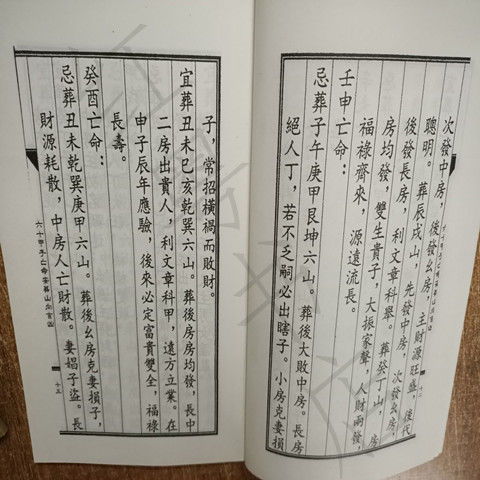 次發中房，後發幺房，主財源旺盛，後代
聰明。葬辰戌山，先發中房，次發幺房，
後發長房，利文章科舉。葬癸丁山，房
房均發，雙生貴子，大振家聲，人財兩發，
福祿齊來，源遠流長。
壬申亡命：
忌葬子午庚甲艮坤六山。葬後大敗中房。長房
絕人丁，若不乏嗣必出瞎子。小房克妻損
十二
子，常招橫禍而敗財。
宜葬丑未巳亥乾巽六山。葬後房房均發，長中
二房出貴人，利文章科甲，遠方立業。在
申子辰年應驗，後來必定富貴雙全，福祿
長壽。
癸酉亡命：
忌葬丑未乾巽庚甲六山。葬後幺房克妻損子，
財源耗散，中房人亡財散。妻娼子盜。長
六十甲子亡命安葬山向吉凶
十三